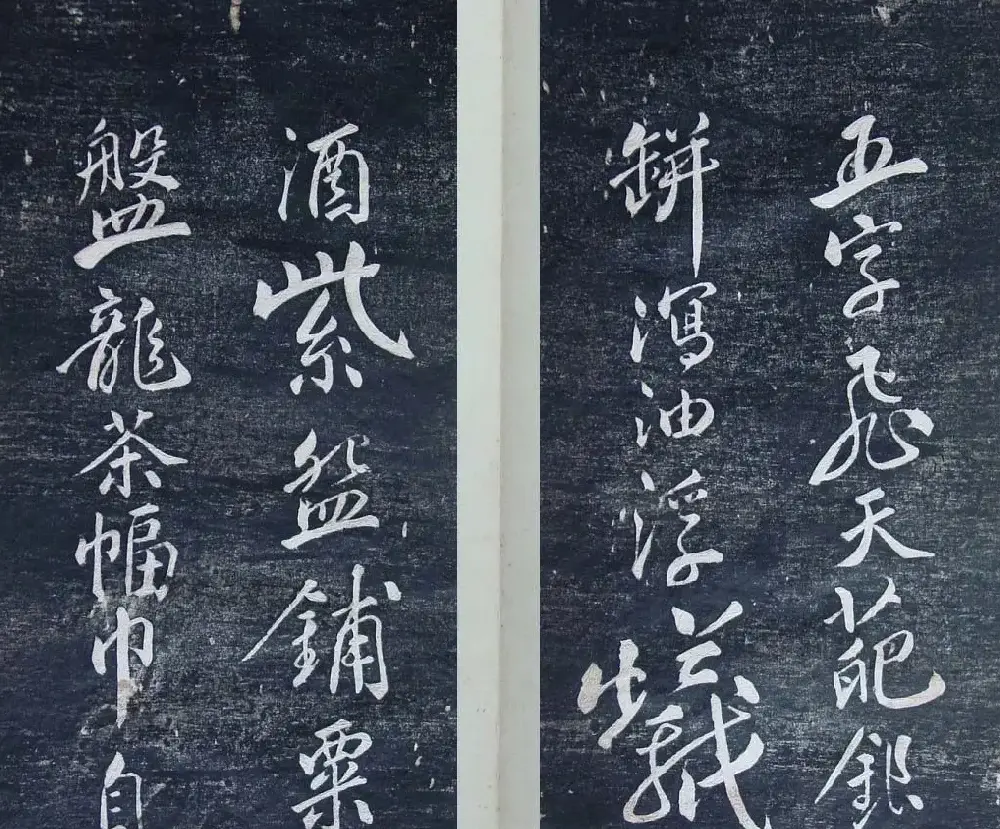 五字飛天葩銀
缾瀉油浮蟻
酒紫盌鋪粟
盤龍茶幅巾自